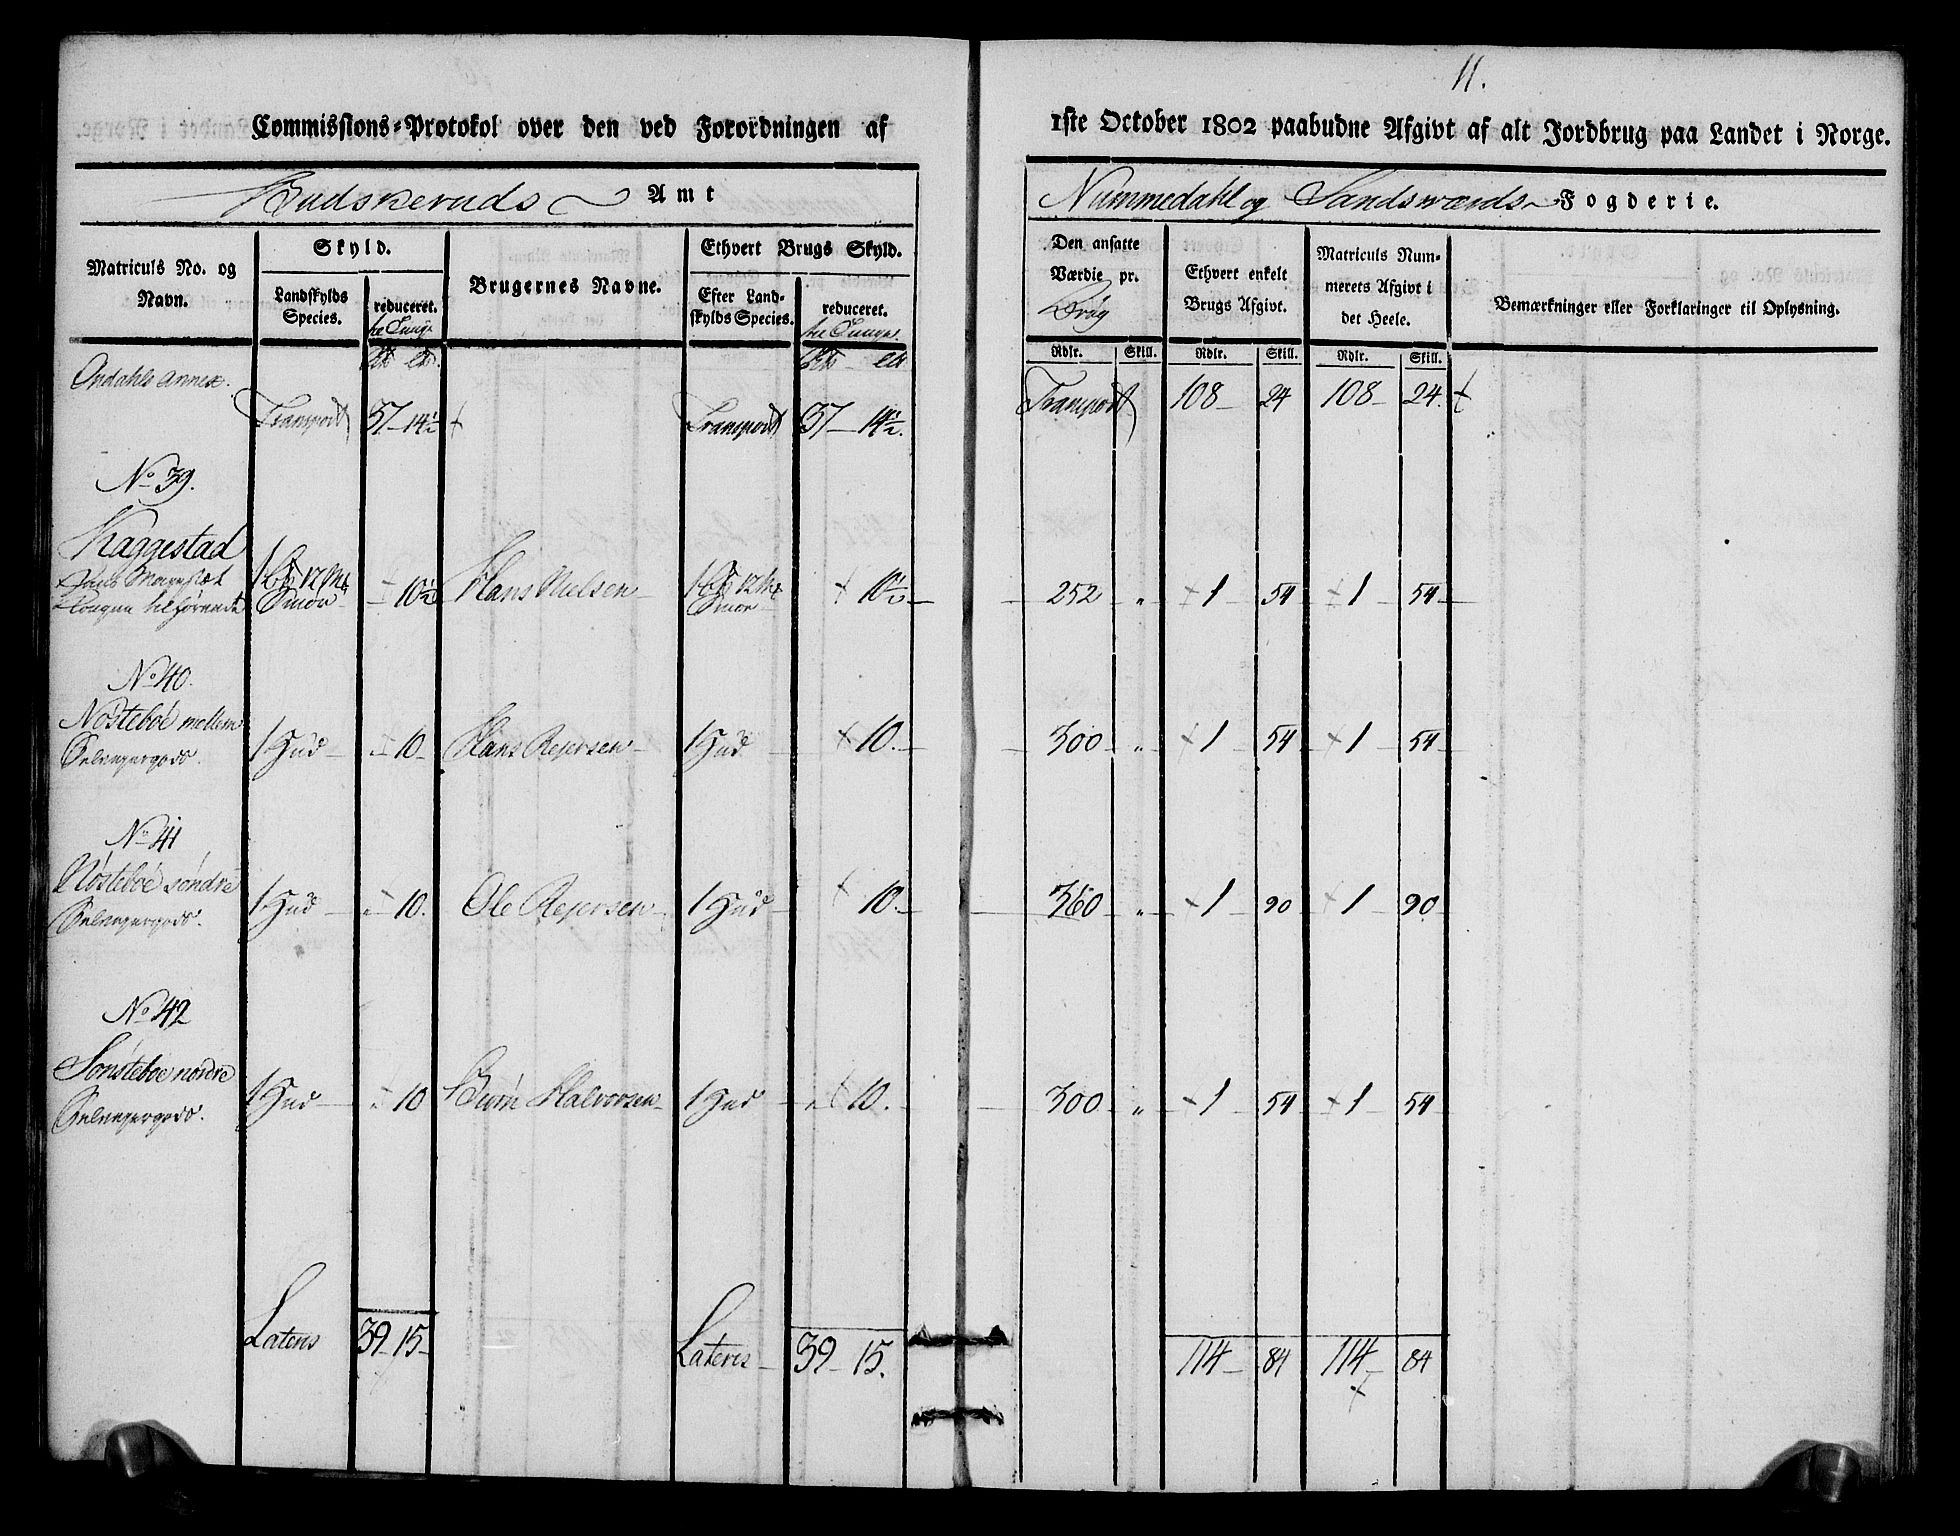 11.
Commissions-Protokol over den ved Forordningen af 1ste October 1802 paabudne Afgivt af alt Jordbrug paa Landet i Norge.
Budskeruds Amt
Nummedahl og Sandsværds Fogderie.
Matriculs No. og Navn.
Skyld.
Landskylds Species.
reduceret.
Brugernes Navne.
Ethvert Brugs Skyld.
Efter Landskylds Species.
reduceret.
Den ansatte Værdie pr.
Ethvert enkelt Brugs Afgivt.
Matriculs Nummerets Afgivt i det Heele.
Bemærkninger eller Forklaringer til Oplysning.
Rdlr. Skill. Rdlr. Skill. Rdlr. Skill.
Ondahls Annex.
Transport 37 - 14½ Transport 37 - 14½. Transport 108 - 24 108 - 24.
No 39.
Kaggestad
1 12 Smør 10½ Hans Nielsen 1 12 Smør 10½ 252 " 1 54 1 54
No 40.
Nøsteboe mellem
1 Hud 10 Hans Rejersen 1 Hud 10. 300 " 1 54 1 54
No 41
Nøsteboe søndre
1 Hud " 10. Ole Rejersen 1 Hud 10. 360 " 1 90 1 90
No 42
Sønsteboe nordre
1 Hud " 10 Halvorsen 1 Hud " 10. 300 " 1 54 1 54
Lateris 39 - 15 - Lateris 39 - 15. 114 84 114 84